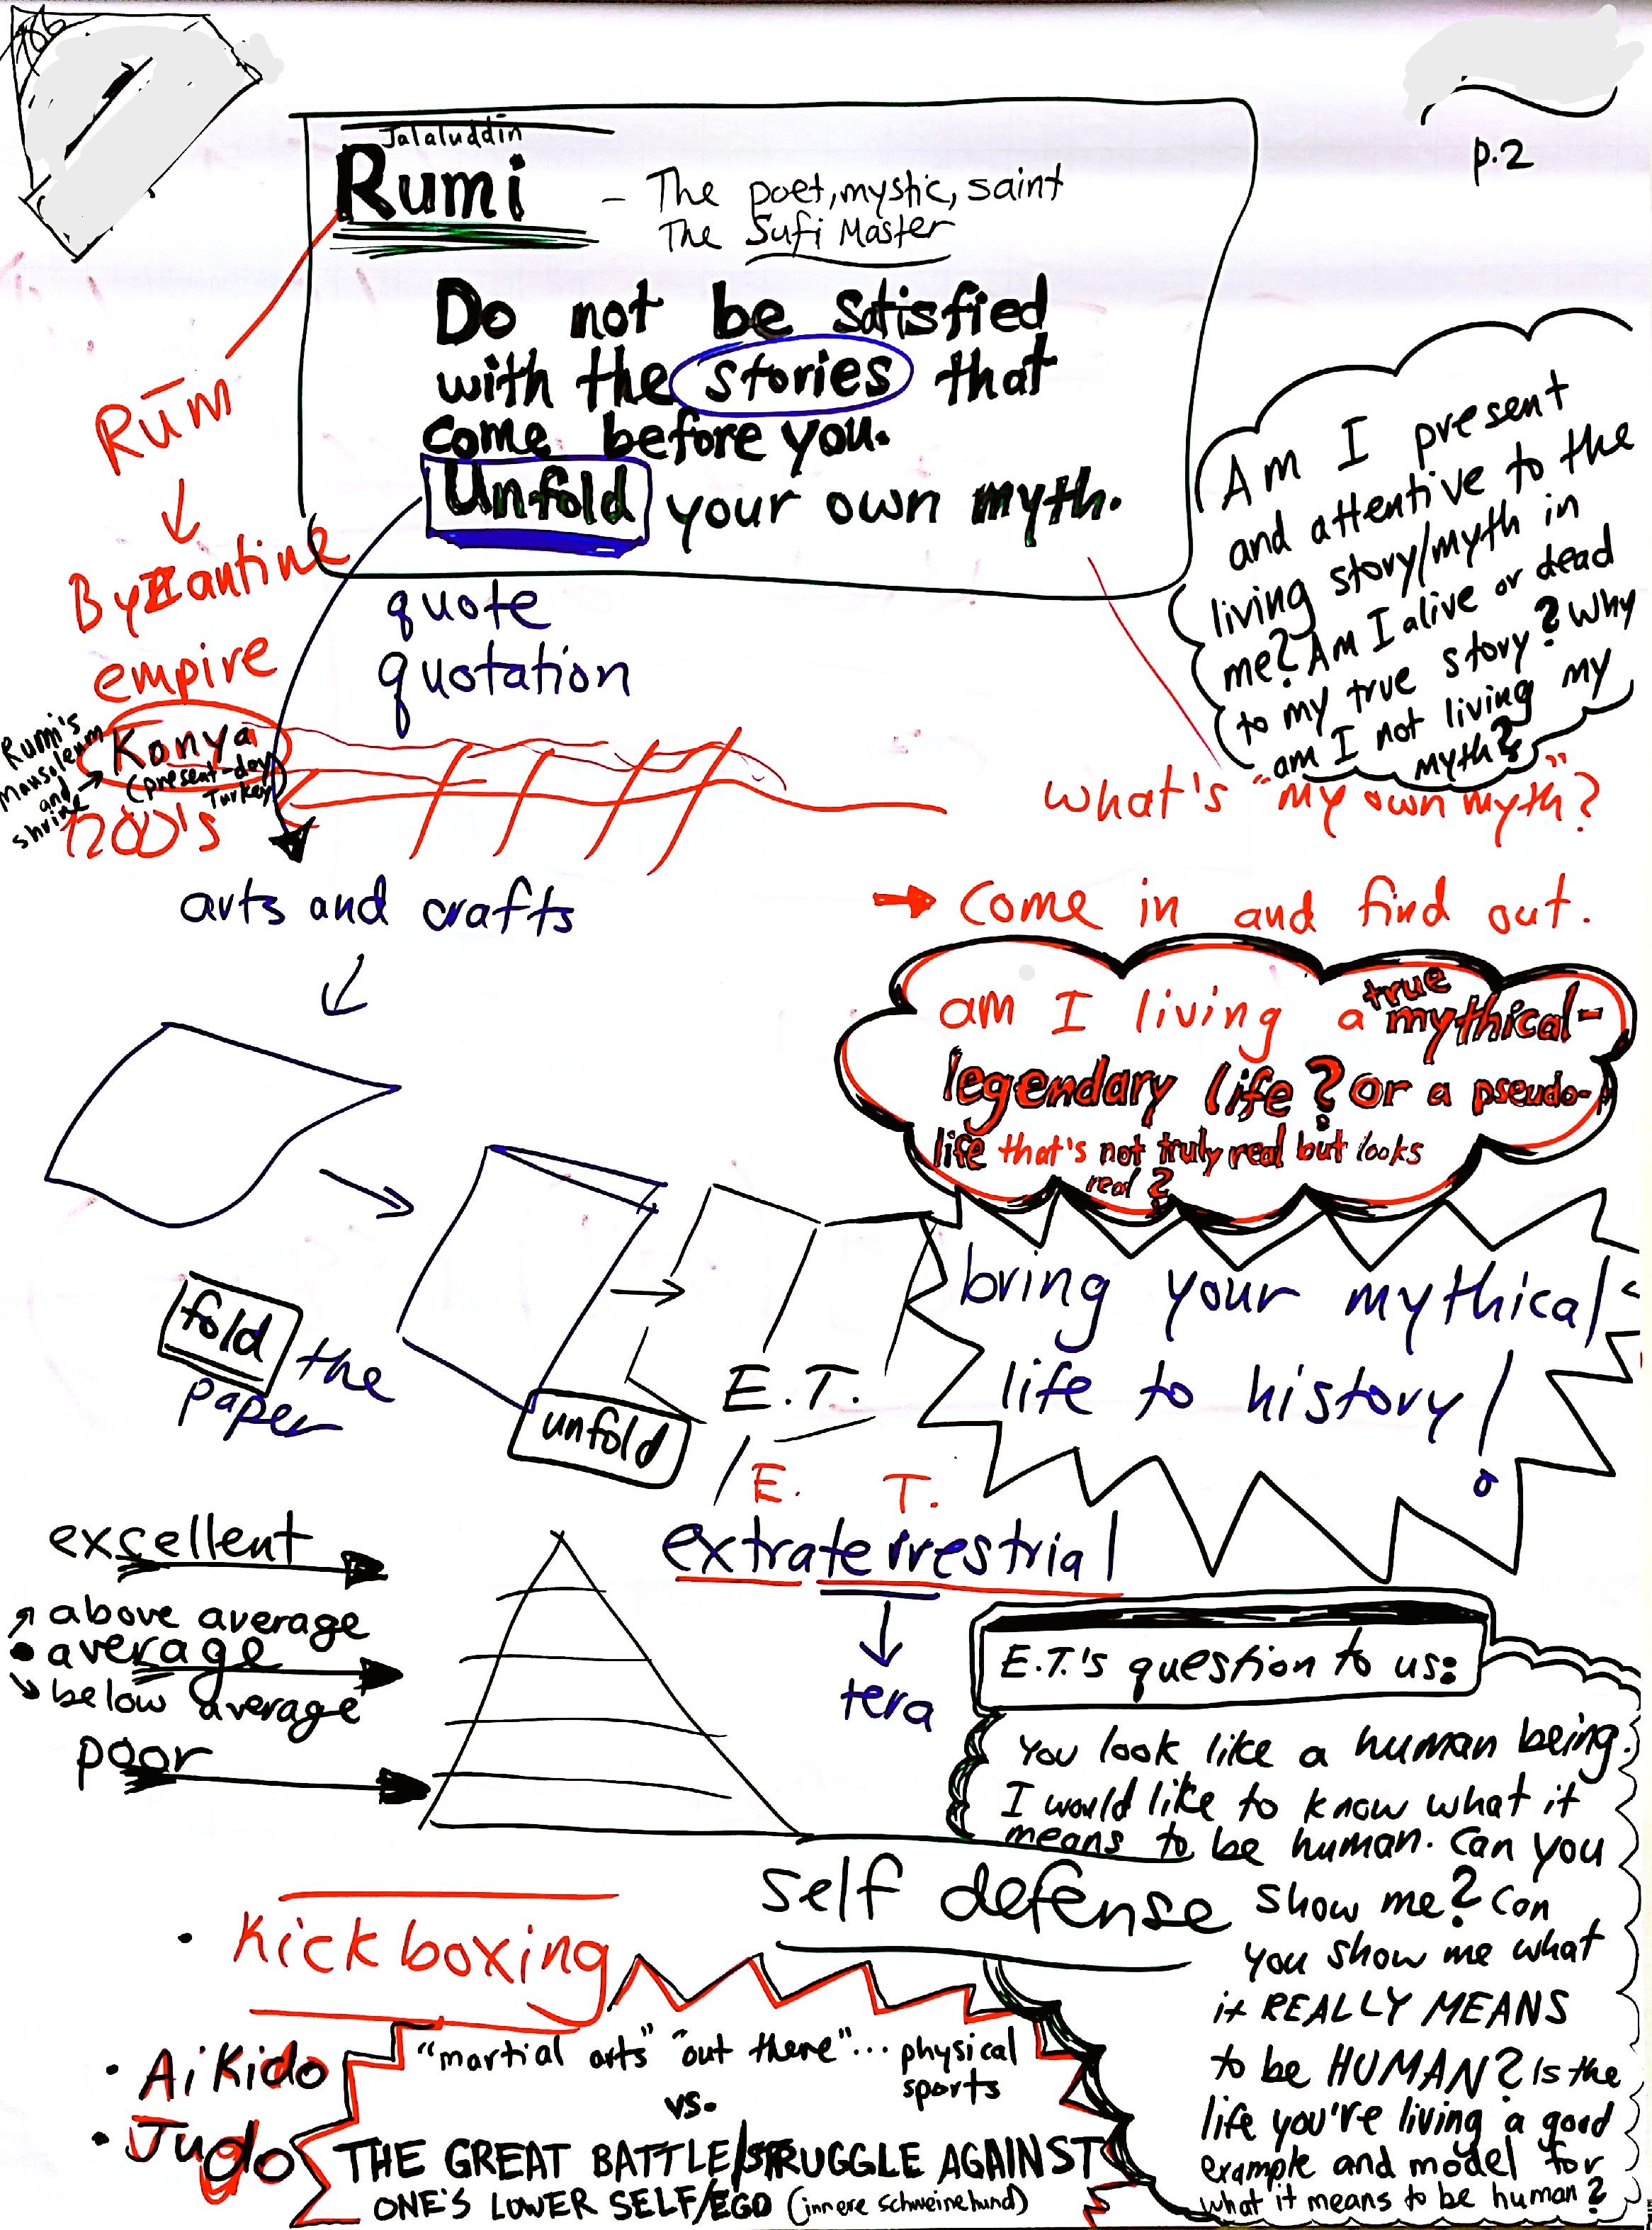 p.2
Jalaluddin
Rumi
- The poet, mystic, saint
The Sufi Master
Do not be satisfied
with the stories that
come before you.
Unfold your own myth.
Rūm
Byzantine
empire
Konya
(present-day
Turkey)
1200's
Rumi's
mausoleum
and
shrine
quote
quotation
Am I present
and attentive to the
living story/myth in
me? Am I alive or dead
to my true story? Why
am I not living my
myth?
what's "my own myth?"
→ come in and find out.
arts and crafts
am I living a true mythical-
legendary life? or a pseudo-
life that's not truly real but looks
real?
fold the
paper
unfold
E.T.
bring your mythical
life to history!
E. T.
extraterrestrial
tera
excellent
above average
average
below average
poor
E.T.'s question to us:
You look like a human being.
I would like to know what it
means to be human. Can you
show me? Can
you show me what
it REALLY MEANS
to be HUMAN? Is the
life you're living a good
example and model for
what it means to be human?
self defense
• Kickboxing
• Aikido
• Judo
"martial arts" "out there"... physical
sports
vs.
THE GREAT BATTLE/STRUGGLE AGAINST
ONE'S LOWER SELF/EGO (innere schweinehund)